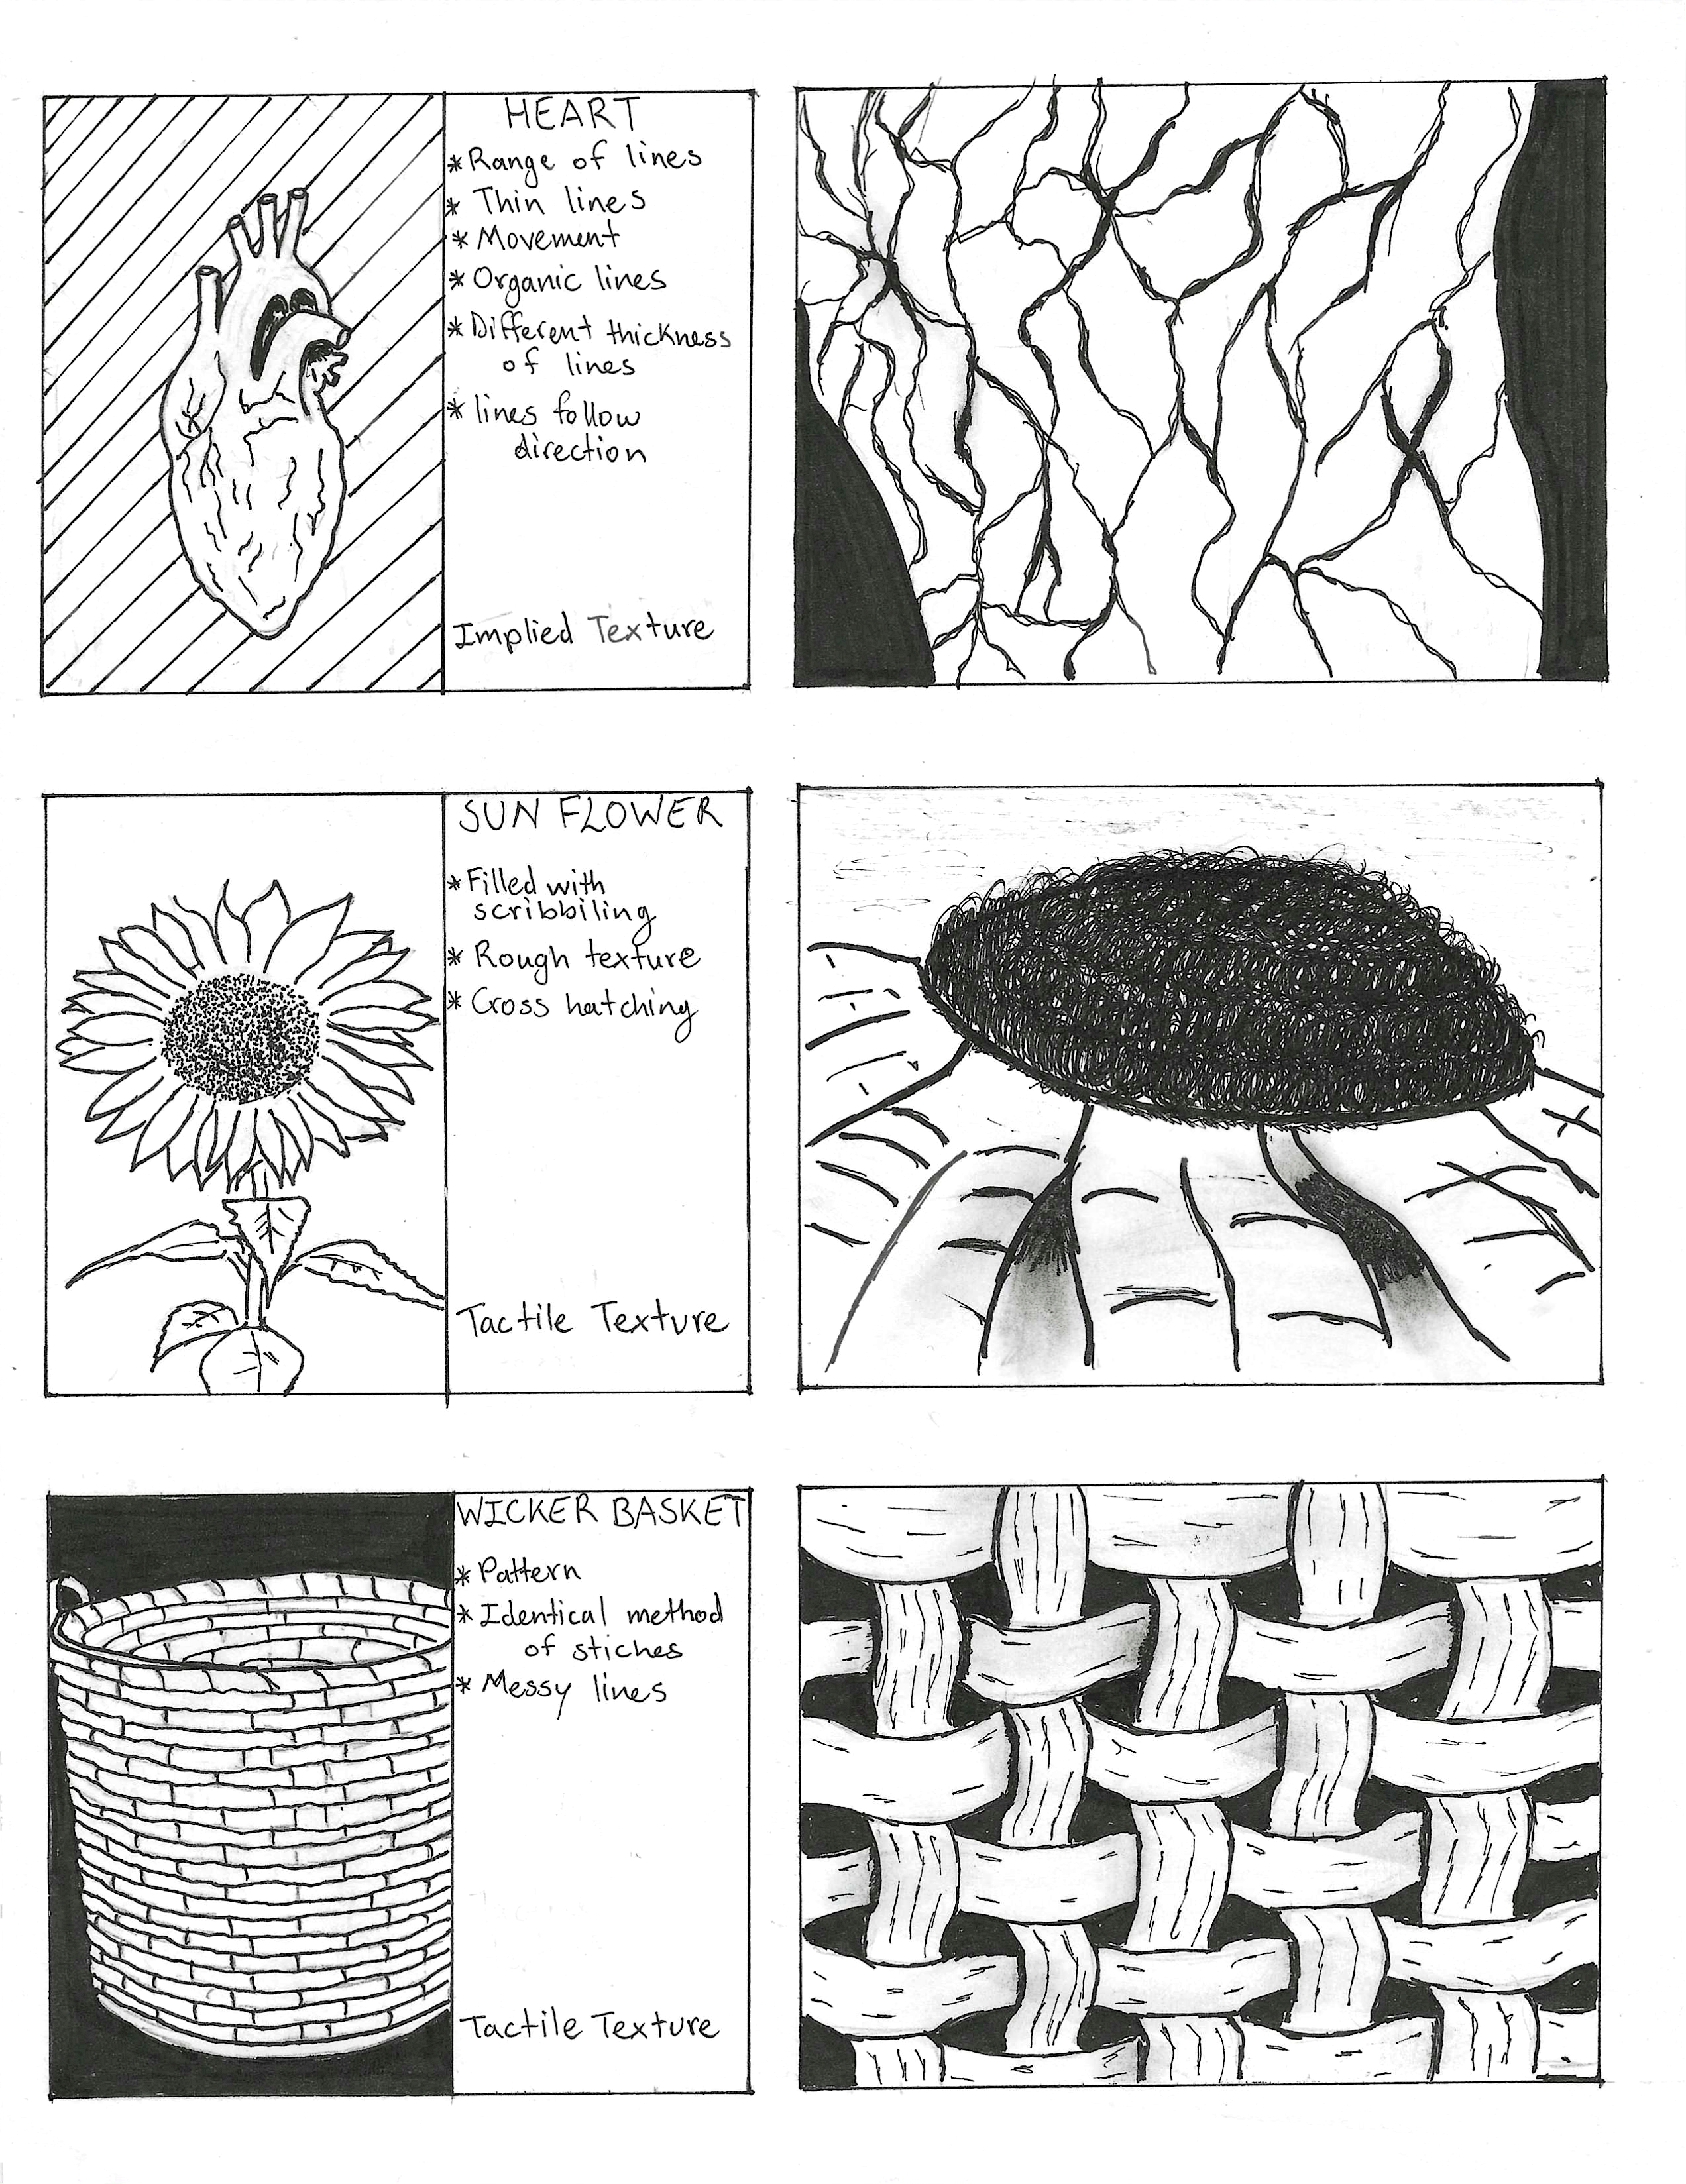 HEART
* Range of lines
* Thin lines
* Movement
* Organic lines
* Different thickness
of lines
* lines follow
direction
Implied Texture
SUN FLOWER
* Filled with
scribbiling
* Rough texture
* Cross hatching
Tactile Texture
WICKER BASKET
* Pattern
* Identical method
of stiches
* Messy lines
Tactile Texture